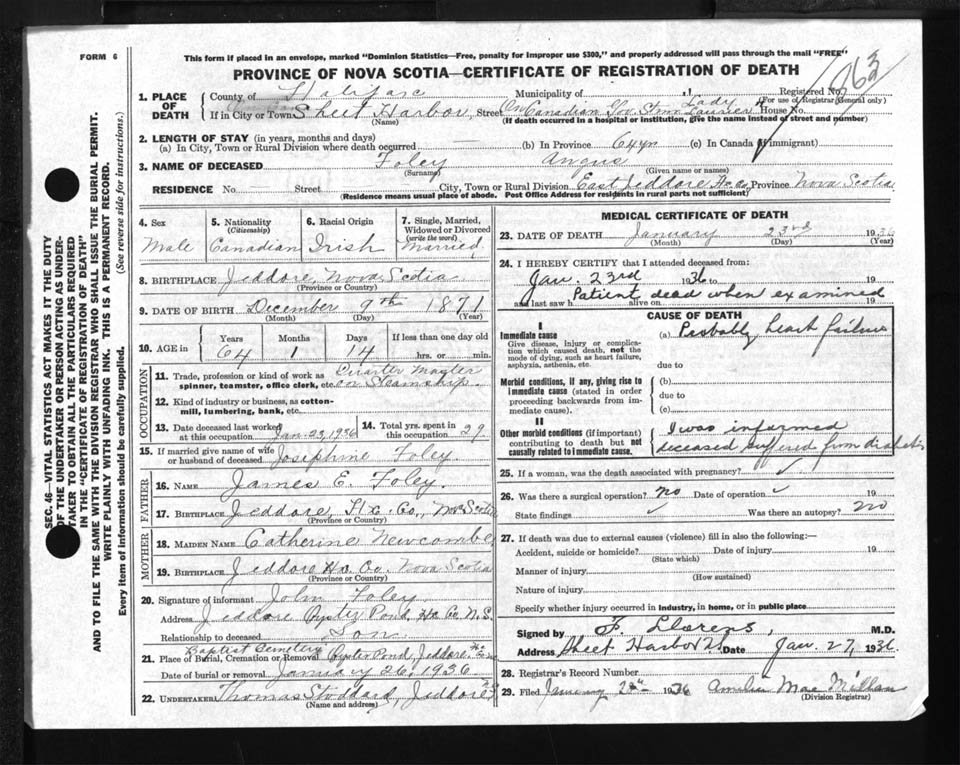 FORM 6
This form if placed in an envelope, marked "Dominion Statistics—Free, penalty for improper use $300," and properly addressed will pass through the mail "FREE"
PROVINCE OF NOVA SCOTIA—CERTIFICATE OF REGISTRATION OF DEATH
1. PLACE OF DEATH
County of Halifax Municipality of Registered No. 63
(For use of Registrar General only)
If in City or Town Sheet Harbor, Street On Canadian Gov. Stmr Lady Laurier House No.
(Name) (If death occurred in a hospital or institution, give the name instead of street and number)
2. LENGTH OF STAY (in years, months and days)
(a) In City, Town or Rural Division where death occurred (b) In Province 64 yrs (c) In Canada (if immigrant)
3. NAME OF DECEASED Foley Angus
(Surname) (Given name or names)
RESIDENCE No. Street City, Town or Rural Division East Jeddore Hx Co Province Nova Scotia
(Residence means usual place of abode. Post Office Address for residents in rural parts not sufficient)
4. Sex 5. Nationality (Citizenship) 6. Racial Origin 7. Single, Married, Widowed or Divorced (write the word)
Male Canadian Irish Married
8. BIRTHPLACE Jeddore, Nova Scotia
(Province or Country)
9. DATE OF BIRTH December 9th 1871
(Month) (Day) (Year)
10. AGE in Years Months Days If less than one day old
64 1 14 hrs. or min.
OCCUPATION
11. Trade, profession or kind of work as spinner, teamster, office clerk, etc. Quarter Master on Steamship.
12. Kind of industry or business, as cotton-mill, lumbering, bank, etc.
13. Date deceased last worked at this occupation Jan. 23, 1936 14. Total yrs. spent in this occupation 29
15. If married give name of wife or husband of deceased Josephine Foley
FATHER
16. NAME James E. Foley.
17. BIRTHPLACE Jeddore, Hx. Co., Nova Scotia
(Province or Country)
MOTHER
18. MAIDEN NAME Catherine Newcombe
19. BIRTHPLACE Jeddore Hx. Co. Nova Scotia
(Province or Country)
20. Signature of informant John Foley
Address Jeddore Oyster Pond, Hx Co N.S.
Relationship to deceased Son
Baptist Cemetery
21. Place of Burial, Cremation or Removal Oyster Pond, Jeddore, Hx Co
Date of burial or removal January 26, 1936
22. UNDERTAKER Thomas Stoddard, Jeddore
(Name and address)
MEDICAL CERTIFICATE OF DEATH
23. DATE OF DEATH January 23rd 1936
(Month) (Day) (Year)
24. I HEREBY CERTIFY that I attended deceased from:
Jan. 23rd 1936 to 19
and last saw h alive on Patient dead when examined 19
CAUSE OF DEATH
I
Immediate cause (a) Probably heart failure
Give disease, injury or complication which caused death, not the mode of dying, such as heart failure, asphyxia, asthenia, etc.
due to
Morbid conditions, if any, giving rise to immediate cause (stated in order proceeding backwards from immediate cause).
(b)
due to
(c)
II
Other morbid conditions (if important) contributing to death but not causally related to immediate cause.
I was informed
deceased suffered from diabetes
25. If a woman, was the death associated with pregnancy?
26. Was there a surgical operation? no Date of operation 19
State findings Was there an autopsy? no
27. If death was due to external causes (violence) fill in also the following:—
Accident, suicide or homicide? Date of injury 19
(State which)
Manner of injury
(How sustained)
Nature of injury
Specify whether injury occurred in industry, in home, or in public place
Signed by F. Llorens, M.D.
Address Sheet Harbor Date Jan. 27, 1936
28. Registrar's Record Number
29. Filed 1936 Amelia MacMillan
(Division Registrar)
SEC. 46—VITAL STATISTICS ACT MAKES IT THE DUTY
OF THE UNDERTAKER OR PERSON ACTING AS UNDER-
TAKER TO OBTAIN ALL THE PARTICULARS REQUIRED
IN THE "CERTIFICATE OF REGISTRATION OF DEATH"
AND TO FILE THE SAME WITH THE DIVISION REGISTRAR WHO SHALL ISSUE THE BURIAL PERMIT.
WRITE PLAINLY WITH UNFADING INK. THIS IS A PERMANENT RECORD.
Every item of information should be carefully supplied. (See reverse side for instructions.)